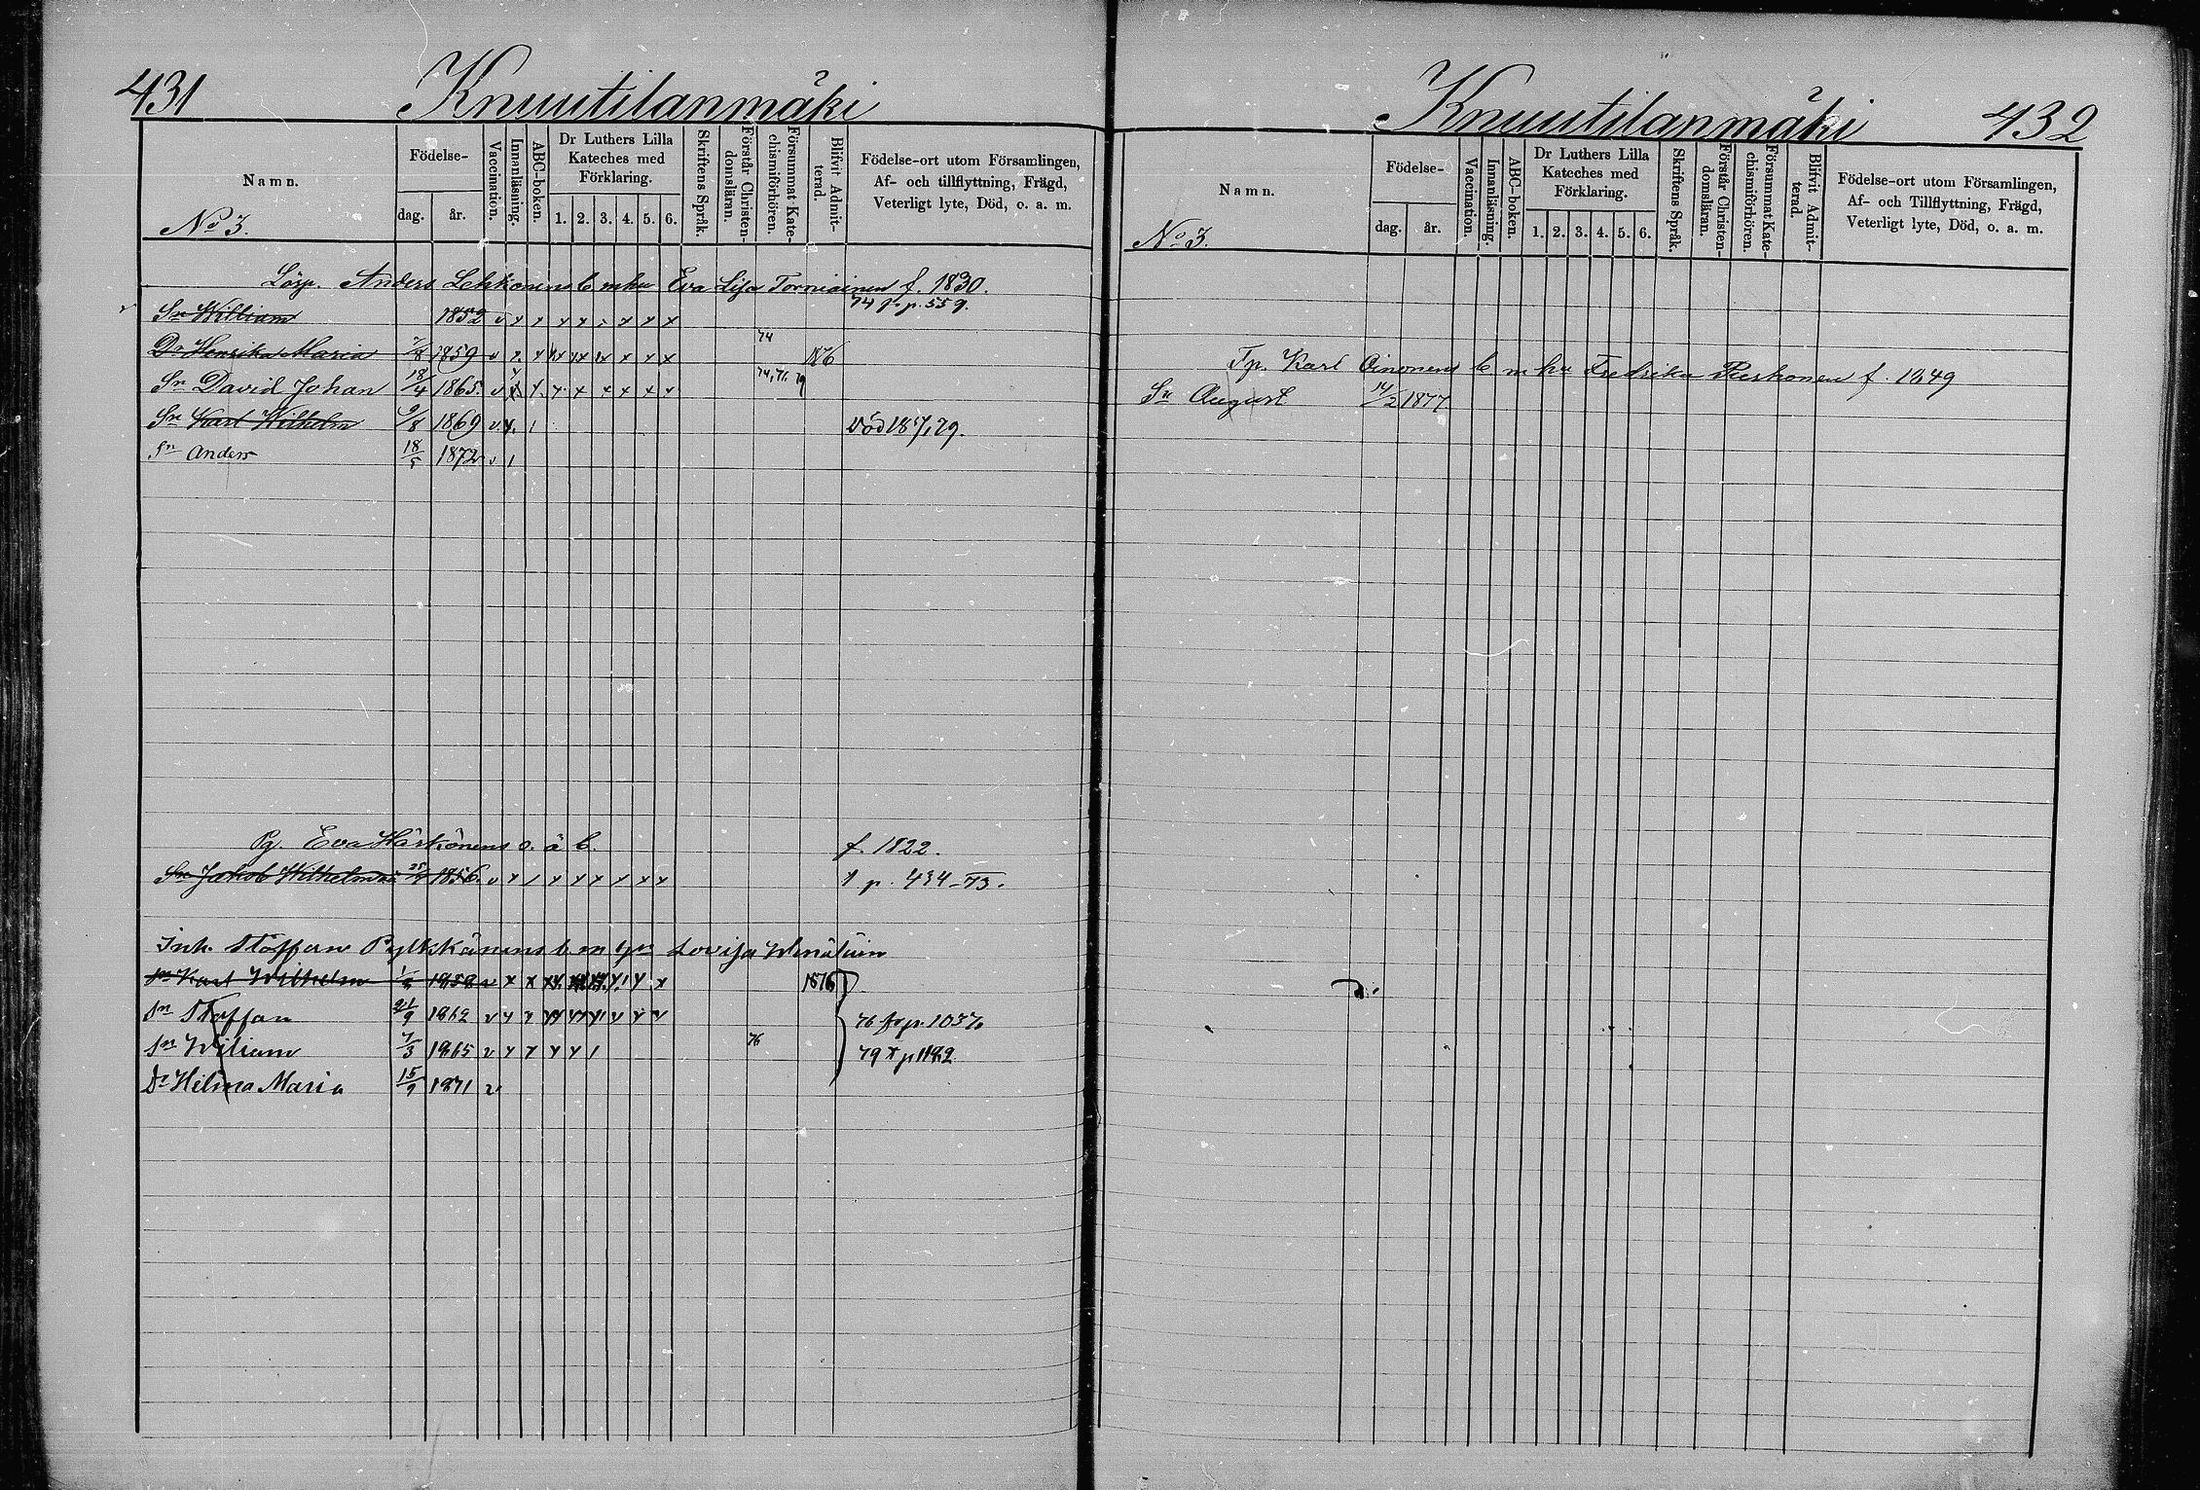 431 Knuutilanmäki
Namn.
No 3.
Födelse-
dag. år.
Vaccination.
Innanläsning.
ABC-boken.
Dr Luthers Lilla
Kateches med
Förklaring.
1. 2. 3. 4. 5. 6.
Skriftens Språk.
Förstår Christen-
domsläran.
Försummat Kate-
chismiförhören.
Blifvit Admit-
terad.
Födelse-ort utom Församlingen,
Af- och tillflyttning, Frägd,
Veterligt lyte, Död, o. a. m.
Lösp. Anders Lehkonens b m hu Eva Lisa Torniainen f. 1830.
Sn William 1852 v x x x x x x x 74 p. 559.
Dr Henrika Maria 7/8 1859 v x x x x x x x x 74 1876
Sn David Johan 18/4 1865. v x x x x x x x x 74, 71. 79
Sn Karl Wilhelm 9/8 1869 v. x. 1 död 18 5/1 79.
Sn Anders 18/5 1872 v 1
Pg. Eva Härkönens o. ä b. f. 1822.
Sn Jakob Wilhelm 25/ 1856. v x / x x x x x x p. 434-73.
Inh. Staffan Pylkkänens b m Lovisa
Sn Karl Wilhelm 1/ 1858 v x x x x x x x x 1876
Sn Staffan 21/9 1862 v x x x x x x x x 76 fr p. 1037
Sn Wiliam 7/3 1865 v x x x x 1 76 79 x p 1182
Dr Hilma Maria 15/9 1871 v
Knuutilanmäki 432
Namn.
No 3.
Födelse-
dag. år.
Vaccination.
Innanläsning.
ABC-boken.
Dr Luthers Lilla
Kateches med
Förklaring.
1. 2. 3. 4. 5. 6.
Skriftens Språk.
Förstår Christen-
domsläran.
Försummat Kate-
chismiförhören.
Blifvit Admit-
terad.
Födelse-ort utom Församlingen,
Af- och Tillflyttning, Frägd,
Veterligt lyte, Död, o. a. m.
Tp. Karl Oinonens b m hu Fredrika f. 1849
Sn August 14/2 1877